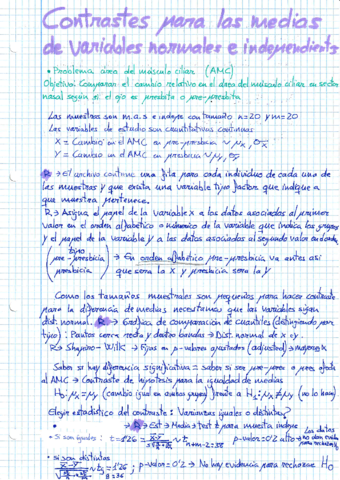 Contrastes para las medias
de variables normales e independientes
• Problema área del músculo ciliar (AMC)
Objetivo: Comparar el cambio relativo en el área del músculo ciliar en sector
nasal según si el ojo es presbita o pre-presbita
Las muestras son m.a.s e indep con tamaño n=20 y m=20
Las variables de estudio son cuantitativas continuas
X = Cambio en el AMC en pre-presbicia
Y = Cambio en el AMC en presbicia
R → El archivo contiene una fila para cada individuo de cada una de
las muestras y que exista una variable tipo factor que indique a
que muestra pertenece.
R → Asigna el papel de la variable X a los datos asociados al primer
valor en el orden alfabético o numérico de la variable que indica los grupos
y el papel de la variable Y a los datos asociados al segundo valor
tipo
pre-presbicia → En orden alfabético pre-presbicia va antes así
presbicia que sera la X y presbicia será la Y
Como los tamaños muestrales son pequeños para hacer contraste
para la diferencia de medias necesitamos que las variables sigan
dist. normal. R → Gráfica de comparación de cuantiles (distinguiendo por
tipo): Puntos cerca recta y dentro bandas → Dist. normal de X e Y.
R → Shapiro-Wilk → Fijas en p-valores ajustados (adjusted) →
Saber si hay diferencia significativa = saber si ser pre-pres o pres afecta
al AMC → Contraste de hipótesis para la igualdad de medias
H₀: μx = μy (cambio igual en ambos grupos) frente a H₁: μx ≠ μy (no lo hace)
Elegir estadístico del contraste: Varianzas iguales o distintas?
→ R → Est → Medias → test t para muestra indep
• Si son iguales: t = 1'26 = n+m-2=38 p-valor = 0'2 alto → Los datos no dan evidencia para rechazar
• Si son distintas
t = 1'26; p-valor = 0'2 → No hay evidencia para rechazar H₀